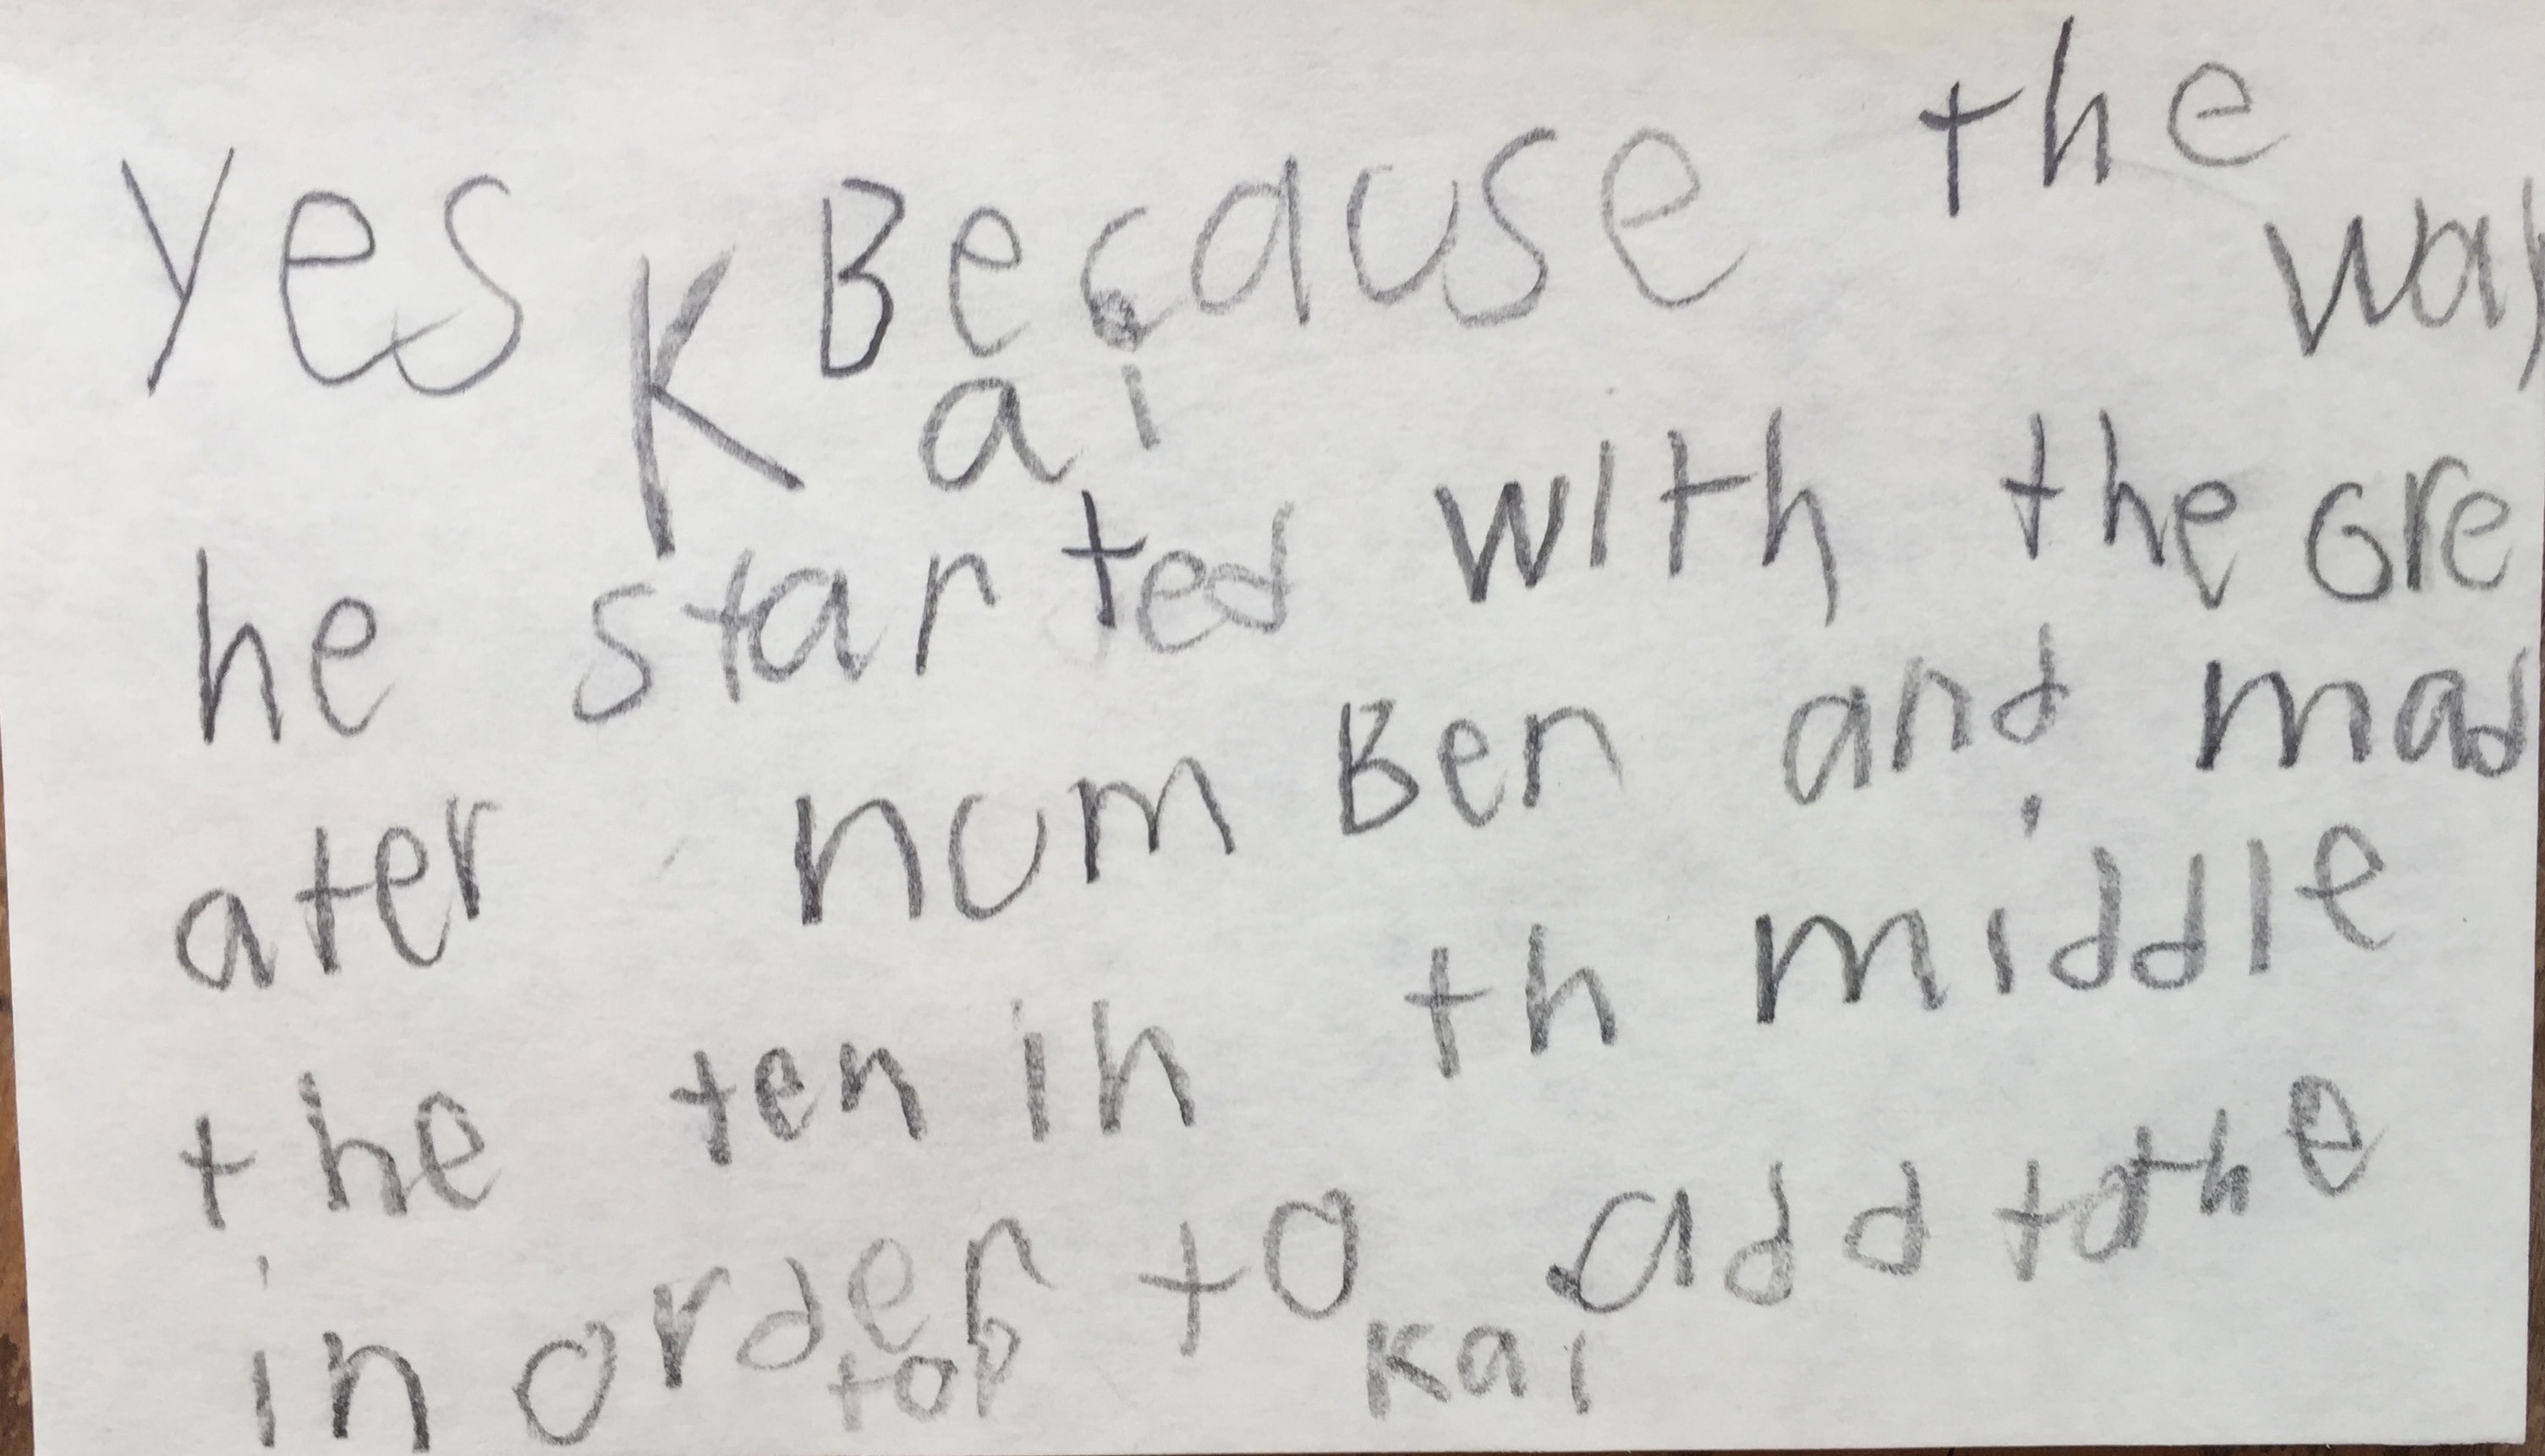 Yes Because the way
Kai
he started with the Gre
ater number and mad
the ten in th middle
in order to add to the
top Kai